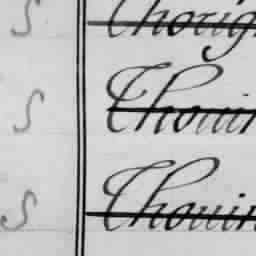 S Thorig
S Thouin
S Thouin